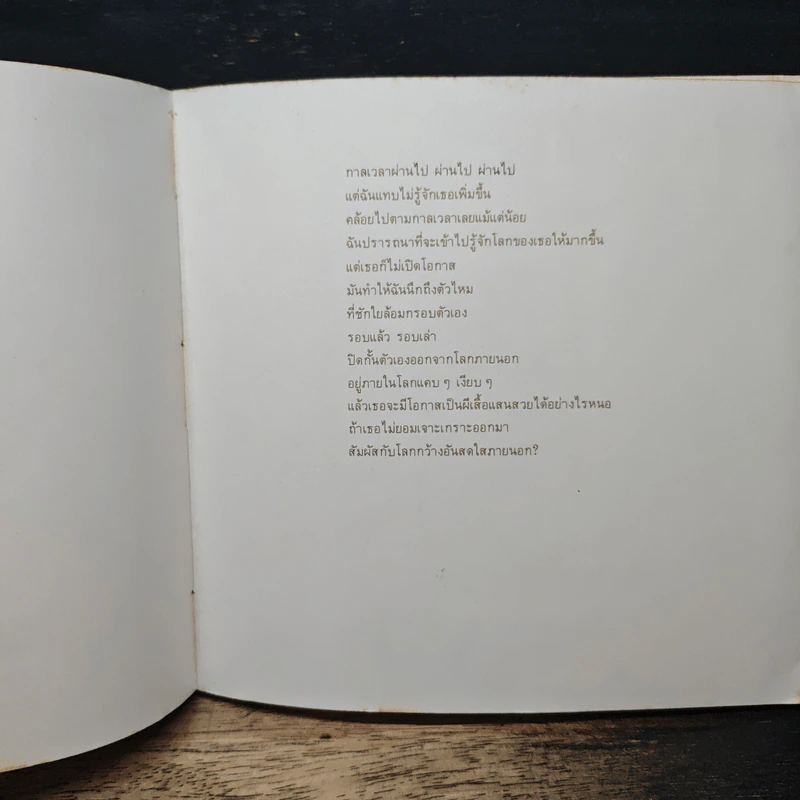 กาลเวลาผ่านไป ผ่านไป ผ่านไป
แต่ฉันแทบไม่รู้จักเธอเพิ่มขึ้น
คล้อยไปตามกาลเวลาเลยแม้แต่น้อย
ฉันปรารถนาที่จะเข้าไปรู้จักโลกของเธอให้มากขึ้น
แต่เธอก็ไม่เปิดโอกาส
มันทำให้ฉันนึกถึงตัวไหม
ที่ชักใยล้อมกรอบตัวเอง
รอบแล้ว รอบเล่า
ปิดกั้นตัวเองออกจากโลกภายนอก
อยู่ภายในโลกแคบ ๆ เงียบ ๆ
แล้วเธอจะมีโอกาสเป็นผีเสื้อแสนสวยได้อย่างไรหนอ
ถ้าเธอไม่ยอมเจาะเกราะออกมา
สัมผัสกับโลกกว้างอันสดใสภายนอก?